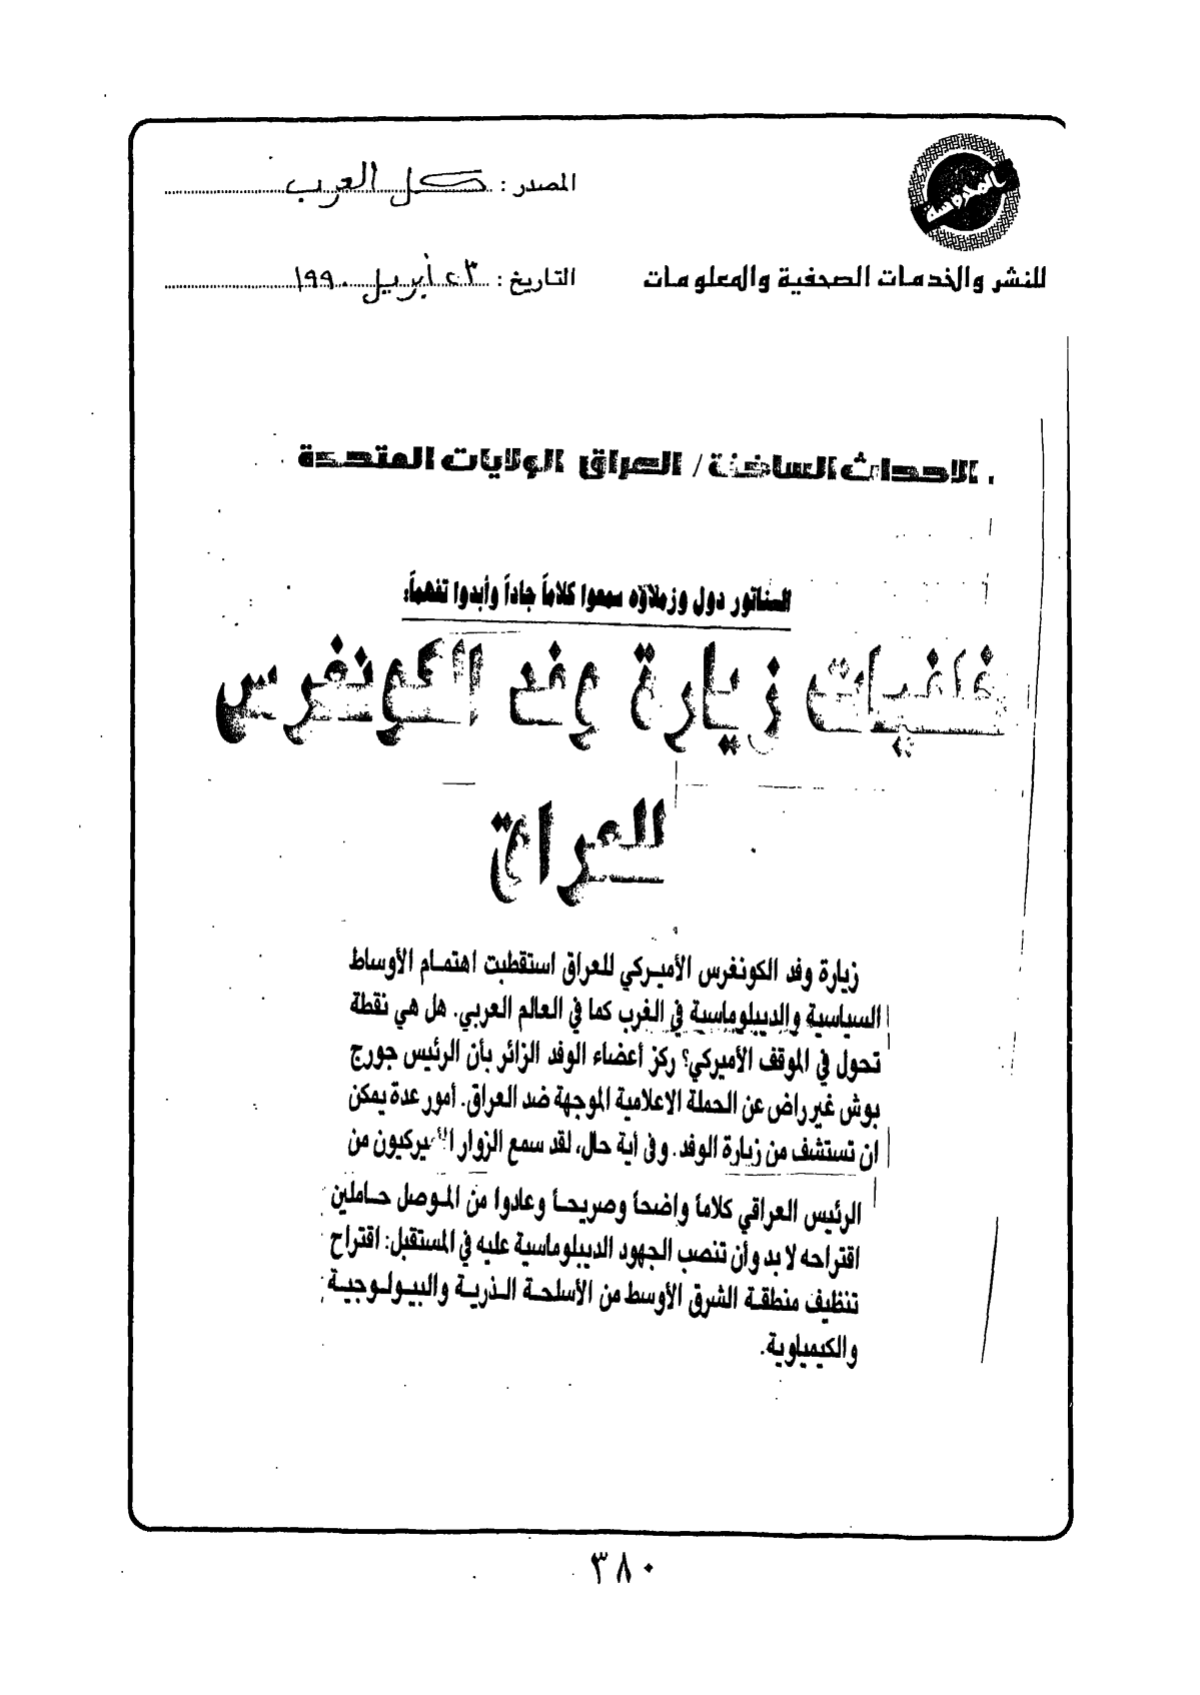 المحروسة
للنشر والخدمات الصحفية والمعلومات
المصدر : كل العرب
التاريخ : ٢٣ أبريل ١٩٩٠
الاحداث الساخنة / العراق الولايات المتحدة
السناتور دول وزملاؤه سمعوا كلاماً جاداً وأبدوا تفهماً:
خلفيات زيارة وفد الكونغرس
للعراق
زيارة وفد الكونغرس الأميركي للعراق استقطبت اهتمام الأوساط
السياسية والديبلوماسية في الغرب كما في العالم العربي. هل هي نقطة
تحول في الموقف الأميركي؟ ركز أعضاء الوفد الزائر بأن الرئيس جورج
بوش غير راض عن الحملة الاعلامية الموجهة ضد العراق. أمور عدة يمكن
ان تستشف من زيارة الوفد. وفي أية حال، لقد سمع الزوار الأميركيون من
الرئيس العراقي كلاماً واضحاً وصريحاً وعادوا من الموصل حاملين
اقتراحه لا بد وأن تنصب الجهود الديبلوماسية عليه في المستقبل: اقتراح
تنظيف منطقة الشرق الأوسط من الأسلحة الذرية والبيولوجية
والكيمياوية.
٣٨٠